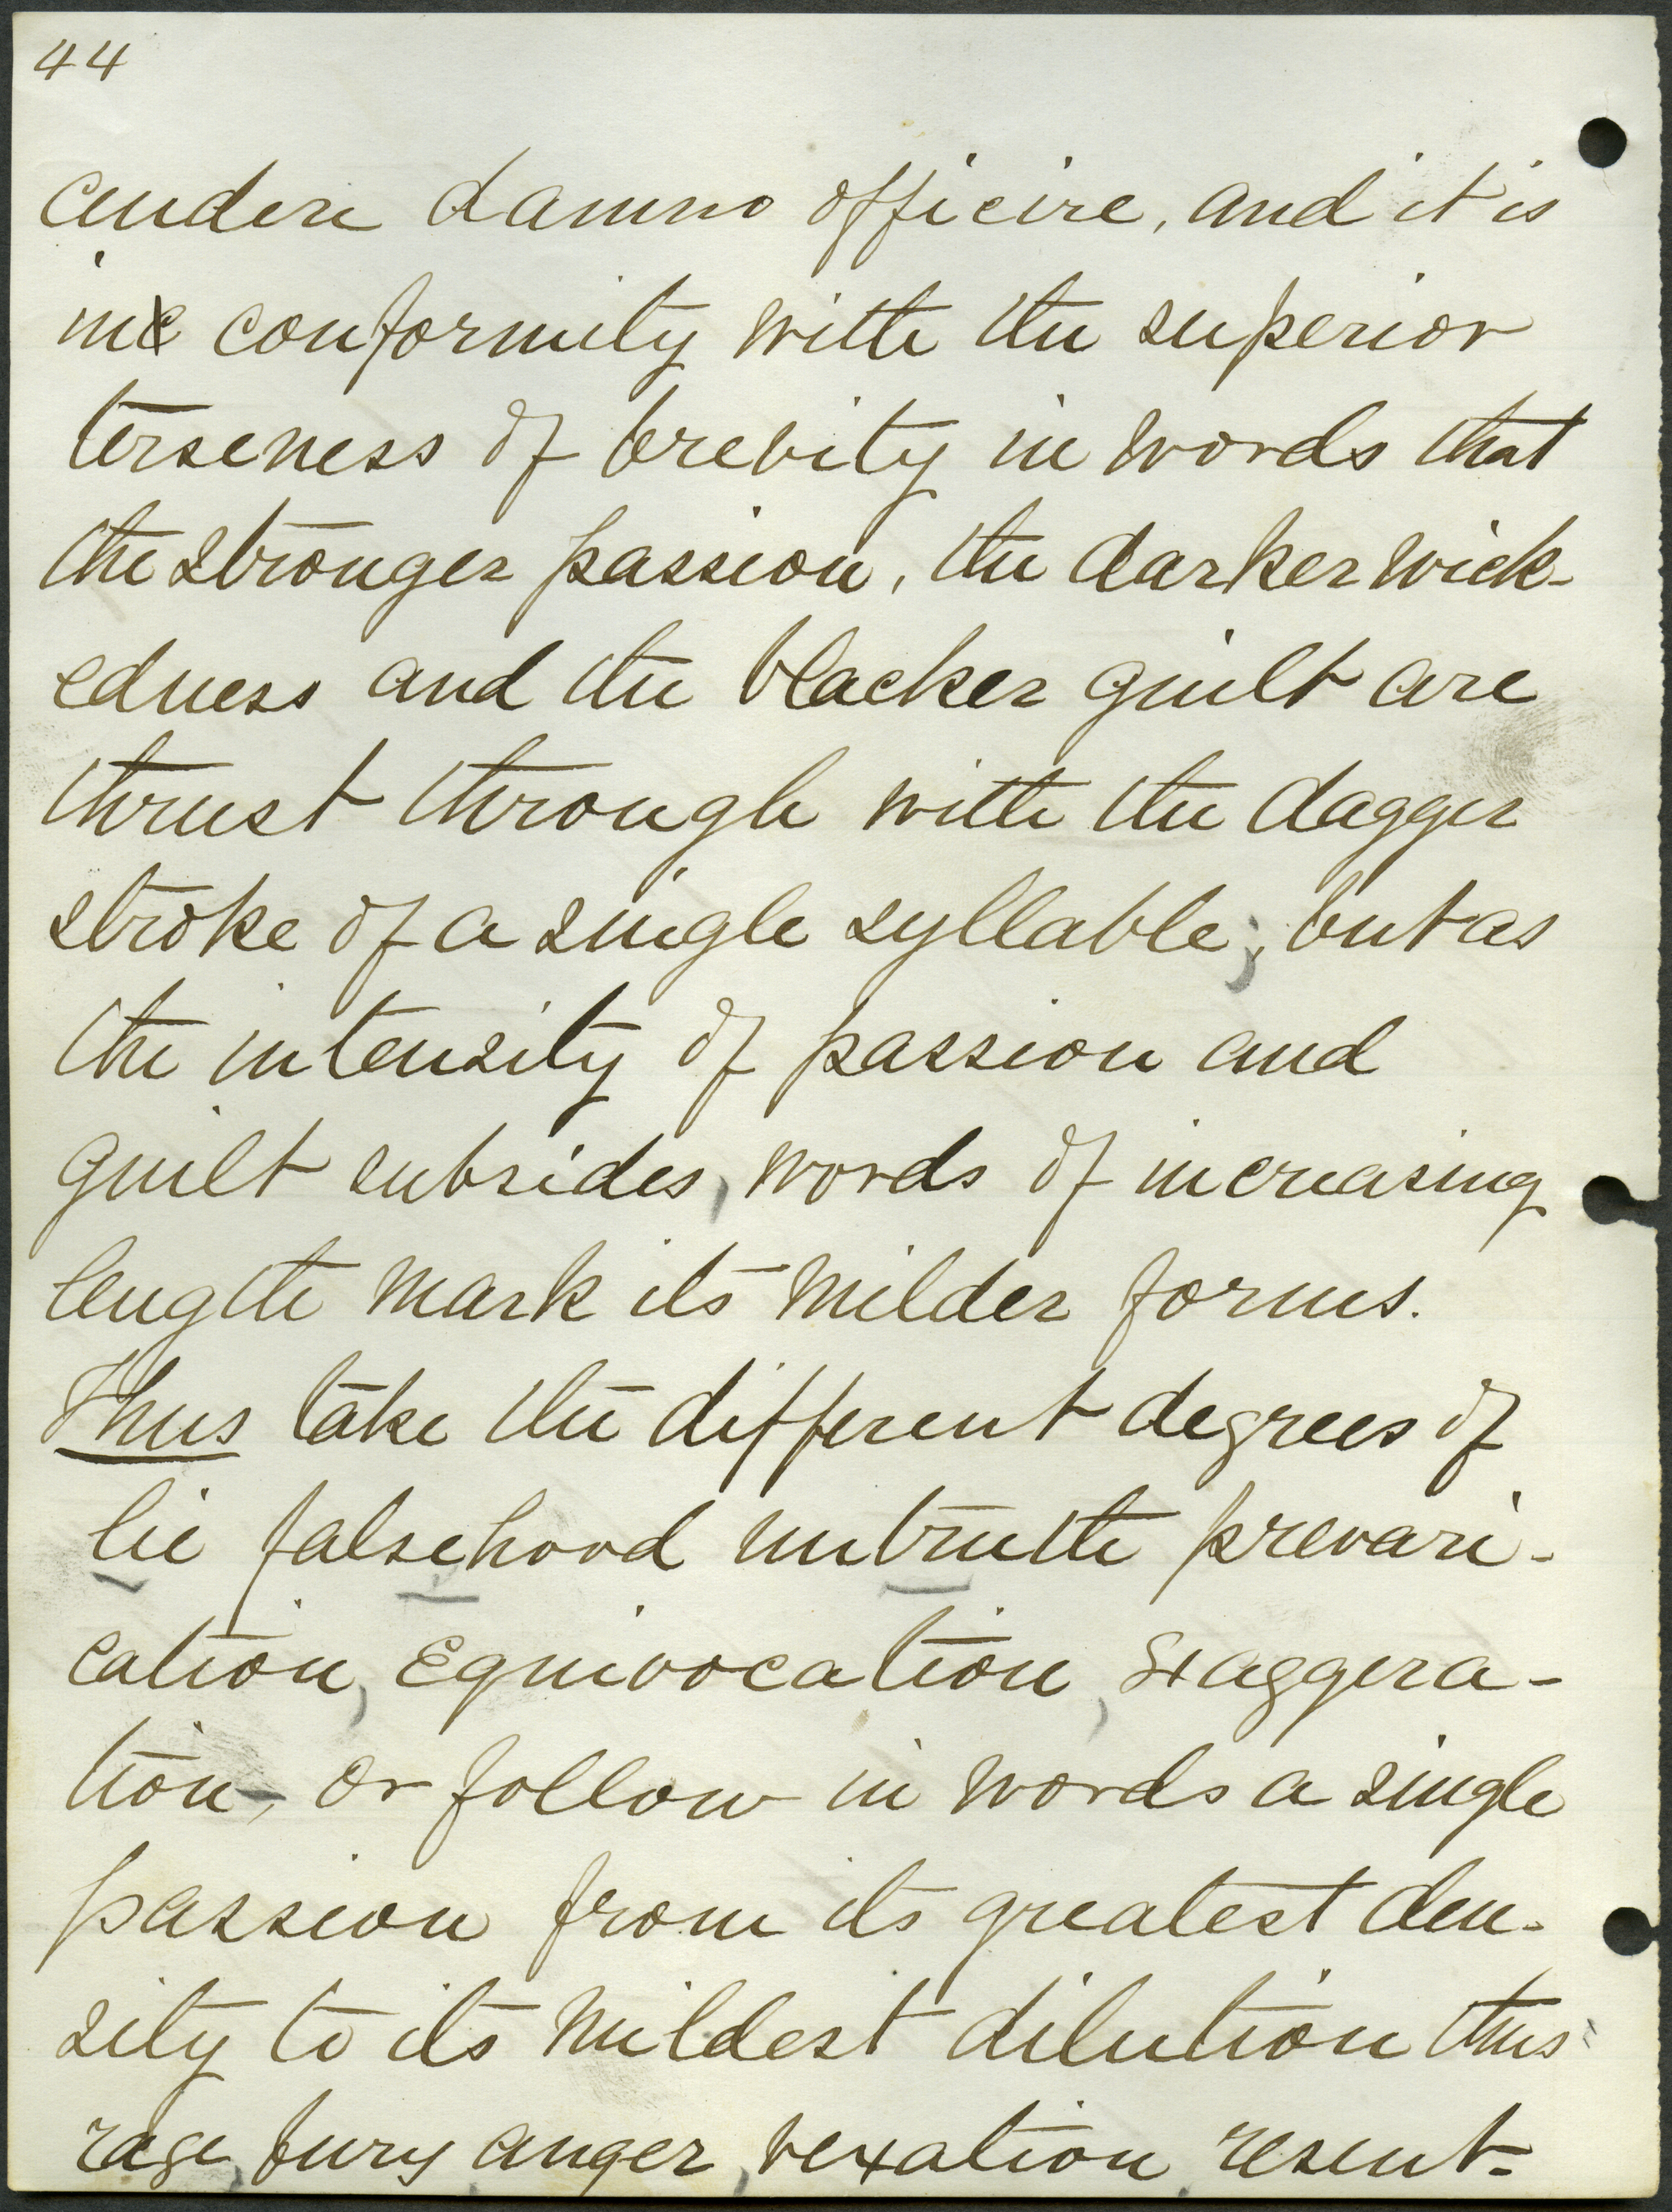 44
cendere damno officire, and it is
in conformity with the superior
terseness of brevity in words that
the stronger passion, the darker wick-
edness and the blacker guilt are
thrust through with the dagger
stroke of a single syllable; but as
the intensity of passion and
guilt subsides, words of increasing
length mark its milder forms.
Thus take the different degrees of
lie falsehood untruth prevari-
cation, Equivocation, Exaggera-
tion, or follow in words a single
passion from its greatest den-
sity to its mildest dilution thus
rage, fury anger, vexation, resent-